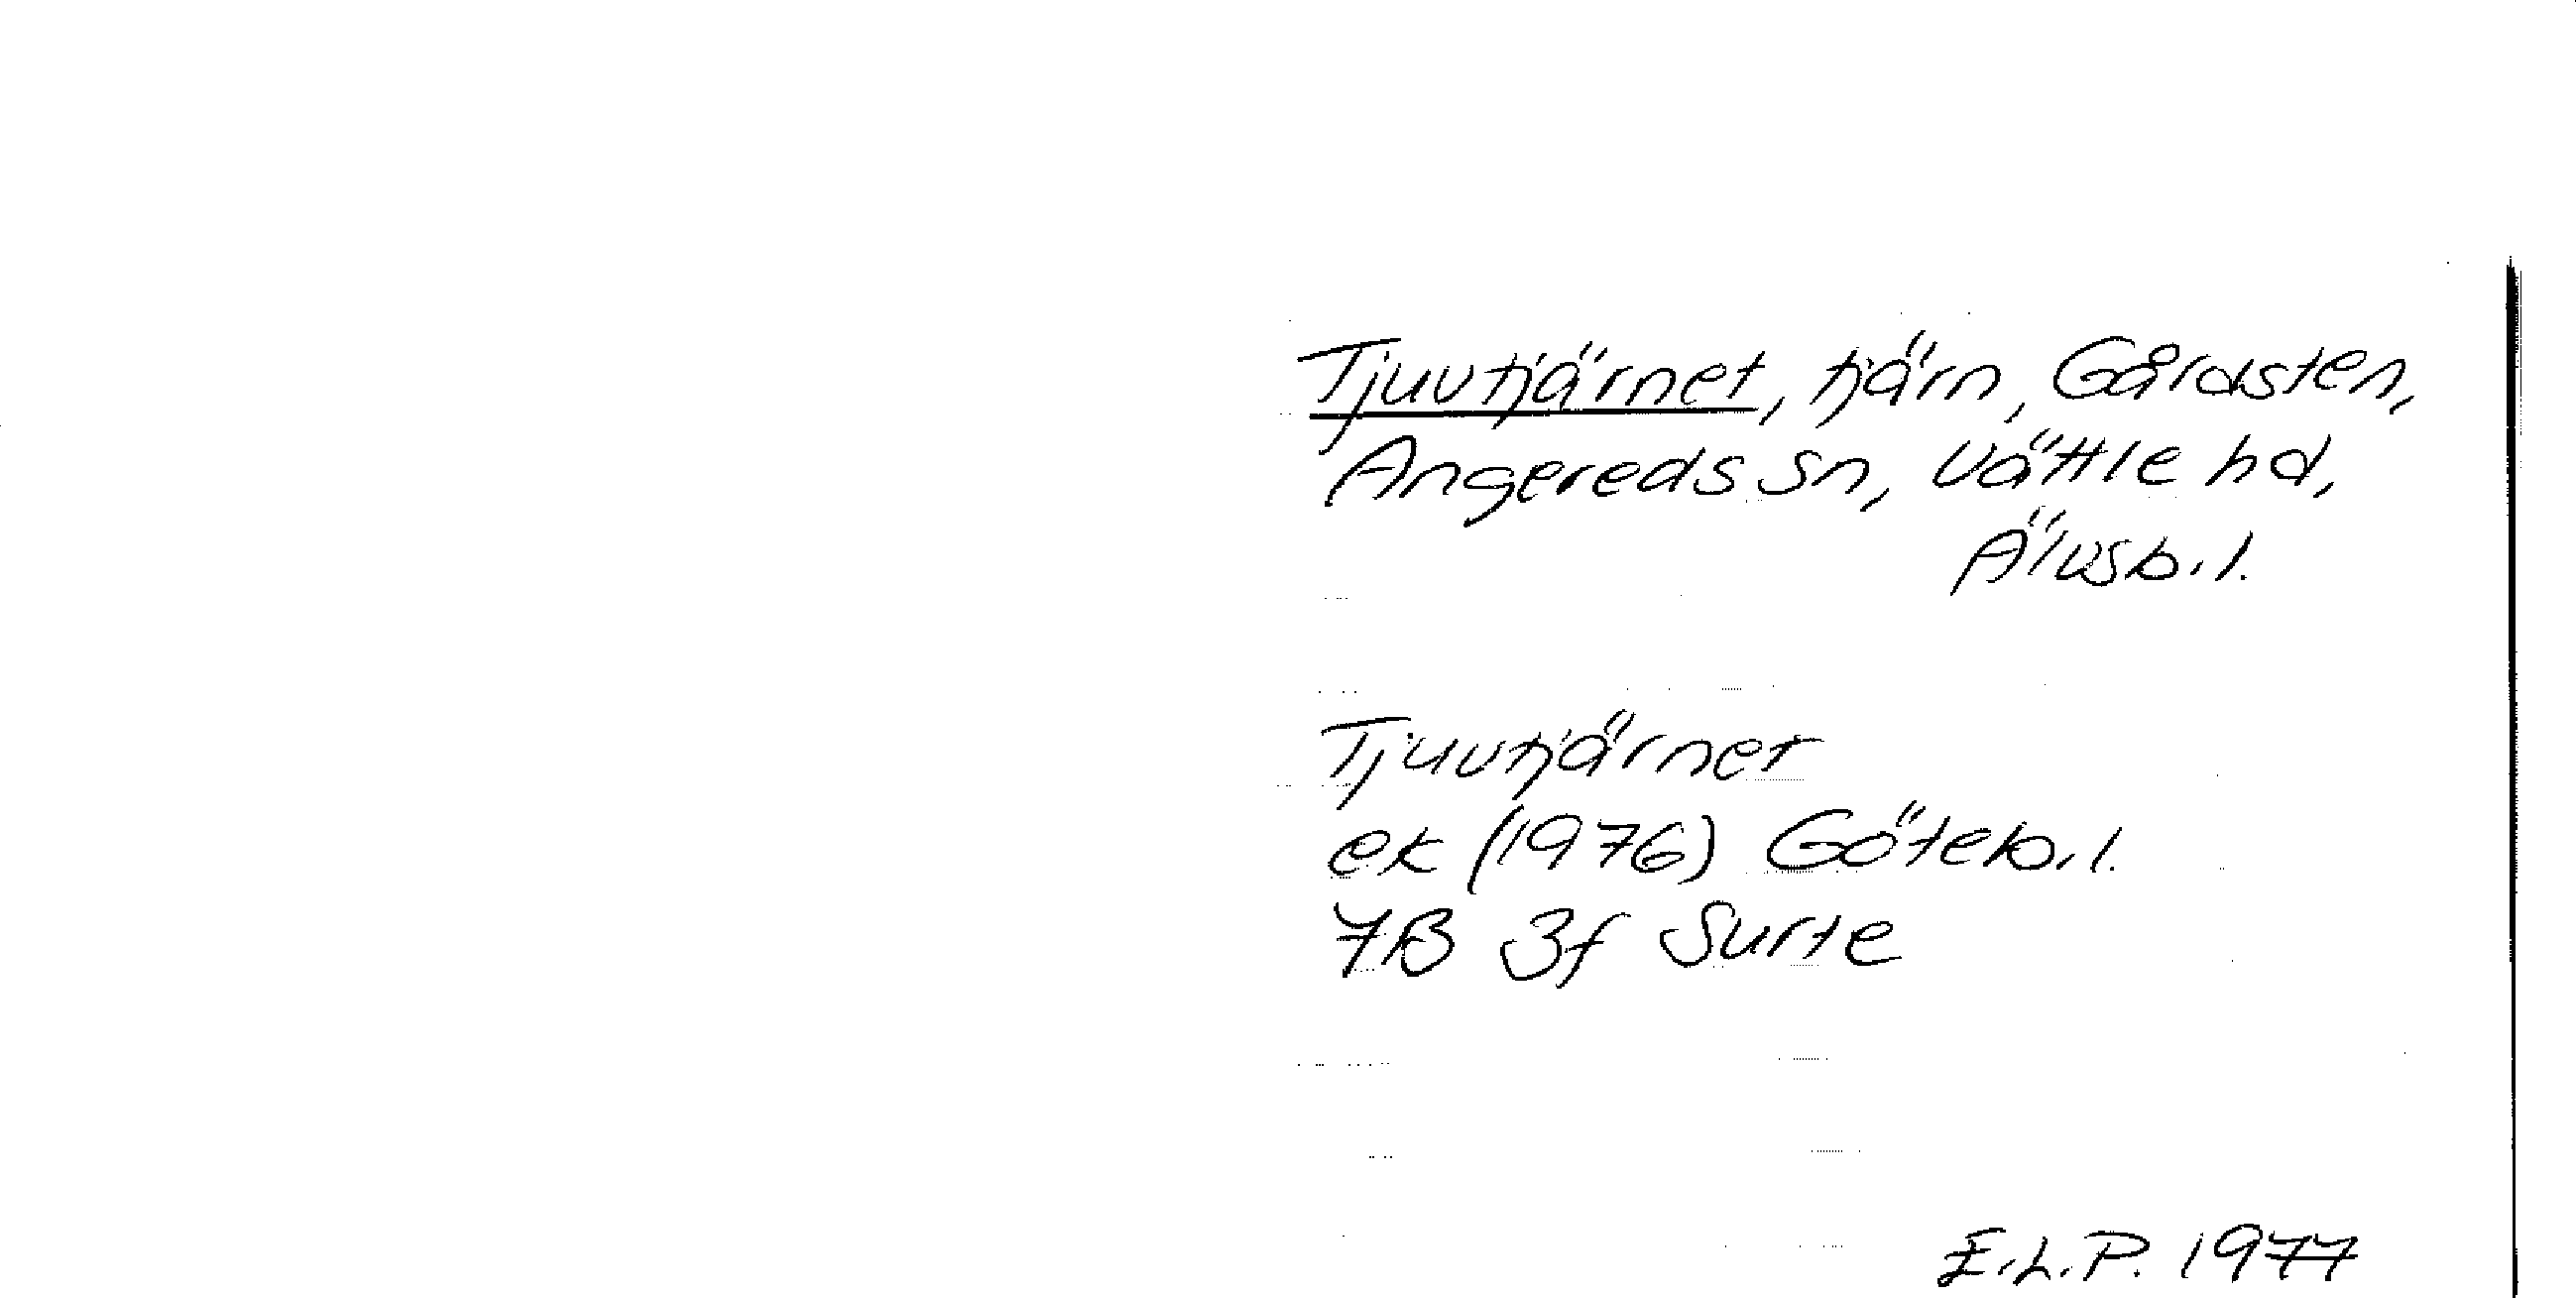 Tjuvtjärnet, tjärn, Gårdsten,
Angereds sn, Vättle hd,
Älvsb. l.
Tjuvtjärnet
ek (1976) Göteb. l.
7B 3f Surte
E.L.P. 1977